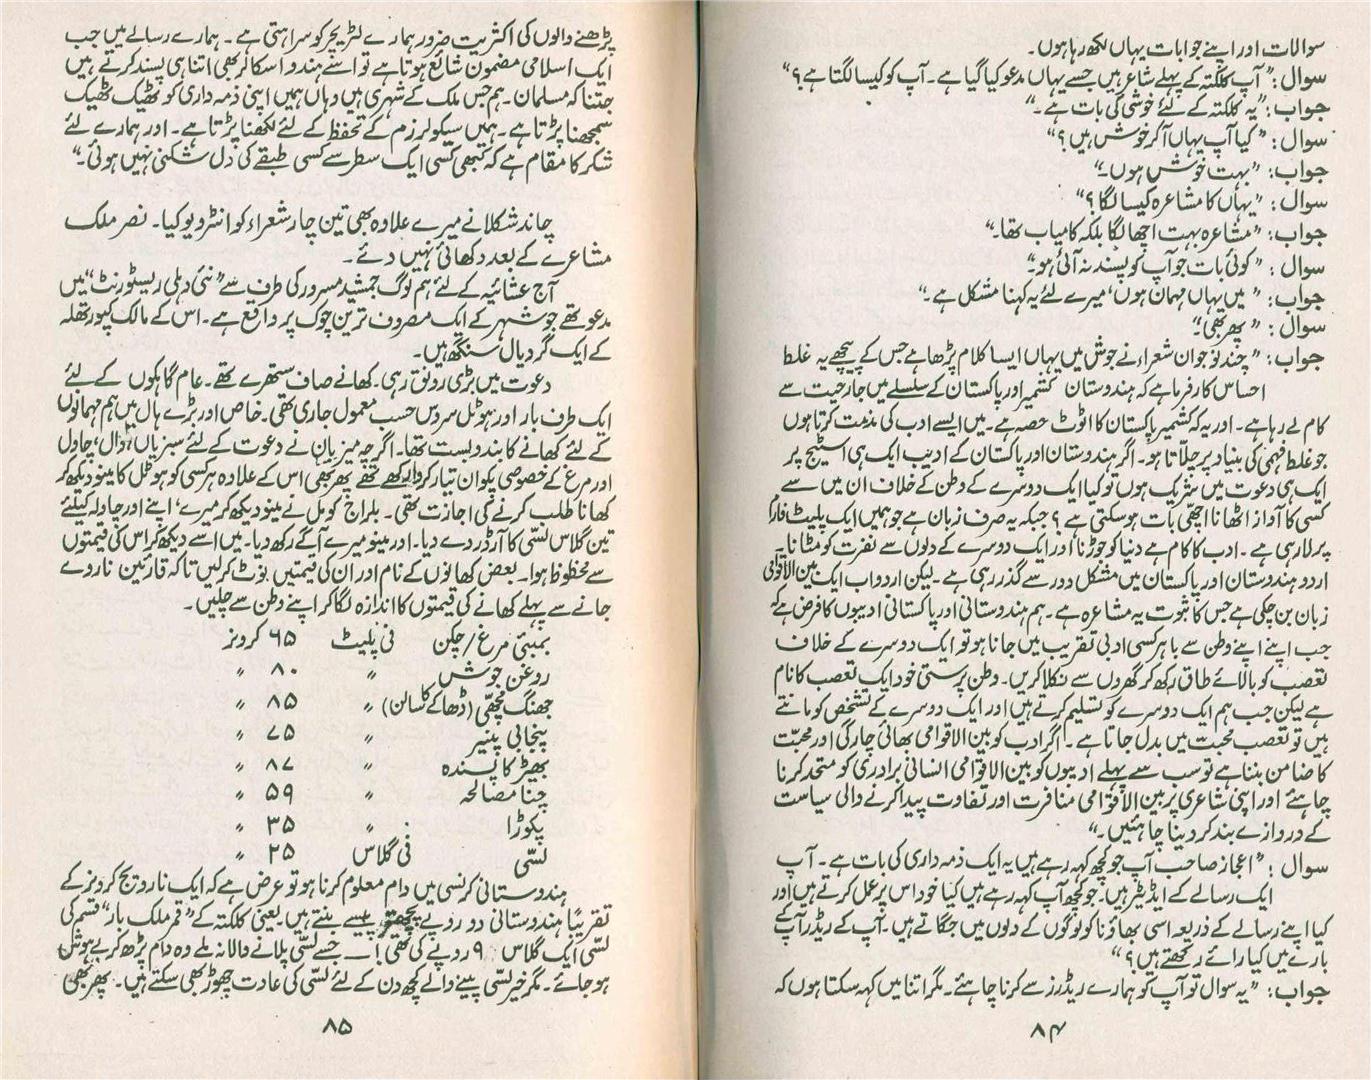 سوالات اور اپنے جوابات یہاں لکھ رہا ہوں۔
سوال : ”آپ کلکتہ کے پہلے شاعر ہیں جسے یہاں مدعو کیا گیا ہے۔ آپ کو کیسا لگتا ہے ؟“
جواب: ”یہ کلکتہ کے لئے خوشی کی بات ہے۔“
سوال : ”کیا آپ یہاں آ کر خوش ہیں ؟“
جواب: ”بہت خوش ہوں۔“
سوال : ”یہاں کا مشاعرہ کیسا لگا ؟“
جواب: ”مشاعرہ بہت اچھا لگا بلکہ کامیاب تھا۔“
سوال : ”کوئی بات جو آپ کو پسند نہ آئی ہو۔“
جواب: ”میں یہاں مہمان ہوں‘ میرے لئے یہ کہنا مشکل ہے۔“
سوال : ”پھر بھی۔“
جواب: ”چند نوجوان شعراء نے جوش میں یہاں ایسا کلام پڑھا ہے جس کے پیچھے یہ غلط
احساس کار فرما ہے کہ ہندوستان کشمیر اور پاکستان کے سلسلے میں جارحیت سے
کام لے رہا ہے۔ اور یہ کہ کشمیر پاکستان کا اٹوٹ حصہ ہے۔ میں ایسے ادب کی مذمت کرتا ہوں
جو غلط فہمی کی بنیاد پر چلّاتا ہو۔ اگر ہندوستان اور پاکستان کے ادیب ایک ہی اسٹیج پر
ایک ہی دعوت میں شریک ہوں تو کیا ایک دوسرے کے وطن کے خلاف ان میں سے
کسی کا آواز اٹھانا اچھی بات ہو سکتی ہے ؟ جبکہ یہ صرف زبان ہے جو ہمیں ایک پلیٹ فارم
پر لا رہی ہے۔ ادب کا کام ہے دنیا کو جوڑنا اور ایک دوسرے کے دلوں سے نفرت کو مٹانا۔
اردو ہندوستان اور پاکستان میں مشکل دور سے گذر رہی ہے۔ لیکن اردو اب ایک بین الاقوامی
زبان بن چکی ہے جس کا ثبوت یہ مشاعرہ ہے۔ ہم ہندوستانی اور پاکستانی ادیبوں کا فرض ہے کہ
جب اپنے اپنے وطن سے باہر کسی ادبی تقریب میں جانا ہو تو ایک دوسرے کے خلاف
تعصب کو بالائے طاق رکھ کر گھروں سے نکلا کریں۔ وطن پرستی خود ایک تعصب کا نام
ہے لیکن جب ہم ایک دوسرے کو تسلیم کرتے ہیں اور ایک دوسرے کے تشخص کو مانتے
ہیں تو تعصب محبت میں بدل جاتا ہے۔ اگر ادب کو بین الاقوامی بھائی چارگی اور محبّت
کا ضامن بننا ہے تو سب سے پہلے ادیبوں کو بین الاقوامی انسانی برادری کو متحد کرنا
چاہئے اور اپنی شاعری پر بین الاقوامی منافرت اور تفاوت پیدا کرنے والی سیاست
کے دروازے بند کر دینا چاہئیں۔“
سوال : ”اعجاز صاحب آپ جو کچھ کہہ رہے ہیں یہ ایک ذمہ داری کی بات ہے۔ آپ
ایک رسالے کے ایڈیٹر ہیں۔ جو کچھ آپ کہہ رہے ہیں کیا خود اس پر عمل کرتے ہیں اور
کیا اپنے رسالے کے ذریعہ اسی بھاؤنا کو لوگوں کے دلوں میں جگاتے ہیں۔ آپ کے ریڈر آپ کے
بارے میں کیا رائے رکھتے ہیں ؟“
جواب: ”یہ سوال تو آپ کو ہمارے ریڈرز سے کرنا چاہئے۔ مگر اتنا میں کہہ سکتا ہوں کہ
۸۴
پڑھنے والوں کی اکثریت ضرور ہمارے لٹریچر کو سراہتی ہے۔ ہمارے رسالے میں جب
ایک اسلامی مضمون شائع ہوتا ہے تو اسے ہندو اسکالر بھی اتنا ہی پسند کرتے ہیں
جتنا کہ مسلمان۔ ہم جس ملک کے شہری ہیں وہاں ہمیں اپنی ذمہ داری کو ٹھیک ٹھیک
سمجھنا پڑتا ہے۔ ہمیں سیکولرزم کے تحفظ کے لئے لکھنا پڑتا ہے۔ اور ہمارے لئے
شکر کا مقام ہے کہ کبھی کسی ایک سطر سے کسی طبقے کی دل شکنی نہیں ہوئی۔“
چاند شکلا نے میرے علاوہ بھی تین چار شعراء کو انٹرویو کیا۔ نصر ملک
مشاعرے کے بعد دکھائی نہیں دئے۔
آج عشائیہ کے لئے ہم لوگ جمشید مسرور کی طرف سے ”نئی دہلی ریسٹورنٹ“ میں
مدعو تھے جو شہر کے ایک مصروف ترین چوک پر واقع ہے۔ اس کے مالک کپورتھلہ
کے ایک گردیال سنگھ ہیں۔
دعوت میں بڑی رونق رہی۔ کھانے صاف ستھرے تھے۔ عام گاہکوں کے لئے
ایک طرف بار اور ہوٹل سروس حسب معمول جاری تھی۔ خاص اور بڑے ہال میں ہم مہمانوں
کے لئے کھانے کا بندوبست تھا۔ اگرچہ میزبان نے دعوت کے لئے سبزیاں‘ دال‘ چاول
اور مرغ کے خصوصی پکوان تیار کروا رکھے تھے پھر بھی اس کے علاوہ ہر کسی کو ہوٹل کا مینو دیکھ کر
کھانا طلب کرنے کی اجازت تھی۔ بلراج کومل نے مینو دیکھ کر میرے‘ اپنے اور چاولہ کیلئے
تین گلاس لسّی کا آرڈر دے دیا۔ اور مینو میرے آگے رکھ دیا۔ میں اسے دیکھ کر اس کی قیمتوں
سے محظوظ ہوا۔ بعض کھانوں کے نام اور ان کی قیمتیں نوٹ کر لیں تاکہ قارئین ناروے
جانے سے پہلے کھانے کی قیمتوں کا اندازہ لگا کر اپنے وطن سے چلیں۔
بمبئی مرغ / چکن فی پلیٹ ۶۵ کرونر
روغن جوش ” ۸۰ ”
جھنگ مچھی (ڈھاکے کا سالن) ” ۸۵ ”
پنجابی پنیر ” ۷۵ ”
بھیڑ کا پسندہ ” ۸۷ ”
چنا مصالحہ ” ۵۹ ”
پکوڑا ” ۳۵ ”
لسّی فی گلاس ۲۵ ”
ہندوستانی کرنسی میں دام معلوم کرنا ہو تو عرض ہے کہ ایک نارویج کرونر کے
تقریباً ہندوستانی دو روپے پچھتر پیسے بنتے ہیں۔ یعنی کلکتہ کے ”قمر ملک بار“ قسم کی
لسّی ایک گلاس ۹ روپئے کی تھی ! — جسے لسّی پلانے والا نہ ملے وہ دام پڑھ کر بے ہوش
ہو جائے۔ مگر خیر لسّی پینے والے کچھ دن کے لئے لسّی کی عادت چھوڑ بھی سکتے ہیں۔ پھر بھی
۸۵